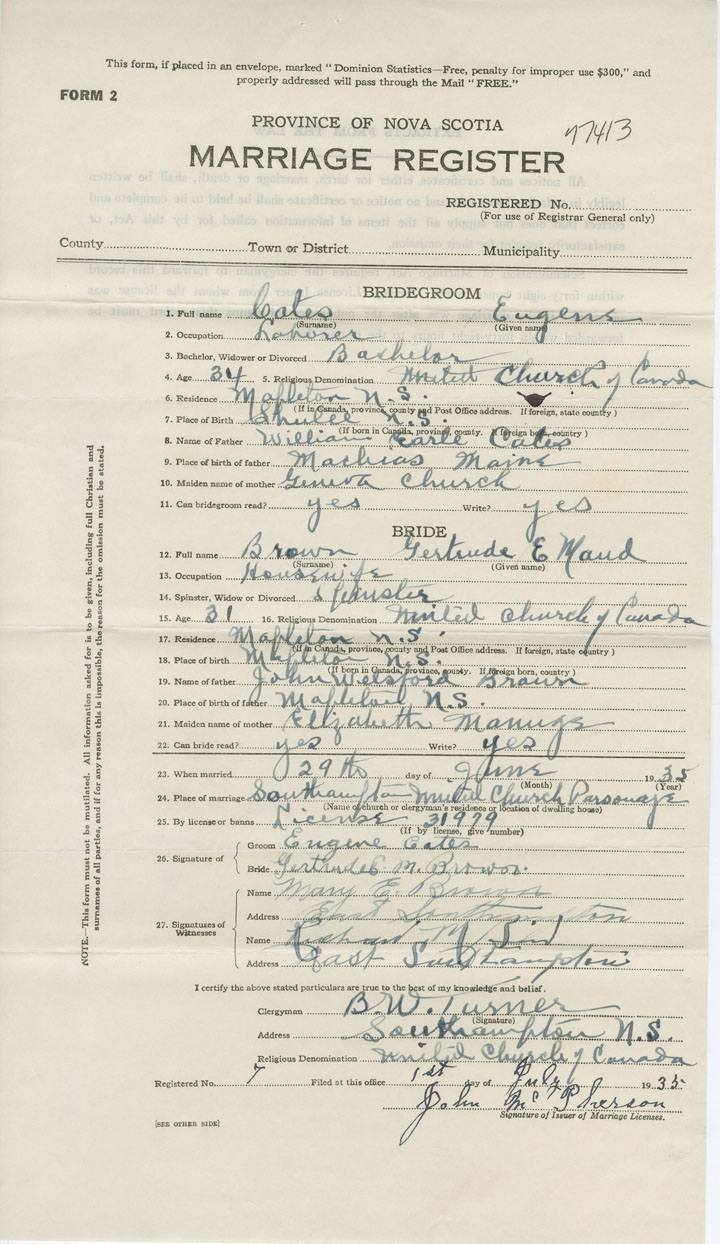 This form, if placed in an envelope, marked "Dominion Statistics—Free, penalty for improper use $300," and
properly addressed will pass through the Mail "FREE."
FORM 2
PROVINCE OF NOVA SCOTIA
77413
MARRIAGE REGISTER
REGISTERED No.
(For use of Registrar General only)
County Town or District Municipality
BRIDEGROOM
1. Full name Cates Eugene
(Surname) (Given name)
2. Occupation Laborer
3. Bachelor, Widower or Divorced Bachelor
4. Age 34 5. Religious Denomination United Church of Canada
6. Residence Mapleton N.S.
(If in Canada, province, county and Post Office address. If foreign, state country)
7. Place of Birth Shulee N.S.
(If born in Canada, province, county. If foreign born, country)
8. Name of Father William Earle Cates
9. Place of birth of father Machias Maine
10. Maiden name of mother Geneva Church
11. Can bridegroom read? yes Write? yes
BRIDE
12. Full name Brown Gertrude E Maud
(Surname) (Given name)
13. Occupation Housewife
14. Spinster, Widow or Divorced Spinster
15. Age 31 16. Religious Denomination United Church of Canada
17. Residence Mapleton N.S.
(If in Canada, province, county and Post Office address. If foreign, state country)
18. Place of birth Mapleton N.S.
(If born in Canada, province, county. If foreign born, country)
19. Name of father John Welsford Brown
20. Place of birth of father Mapleton N.S.
21. Maiden name of mother Elizabeth Manuge
22. Can bride read? yes Write? yes
23. When married 29th day of June 1935
(Month) (Year)
24. Place of marriage Southampton United Church Parsonage
(Name of church or clergyman's residence or location of dwelling house)
25. By license or banns License 31979
(If by license, give number)
26. Signature of
Groom Eugene Cates
Bride Gertrude E. M. Brown.
27. Signatures of Witnesses
Name Mary E. Brown
Address East Southampton
Name M.
Address East Southampton
I certify the above stated particulars are true to the best of my knowledge and belief.
Clergyman B. W. Turner
(Signature)
Address Southampton N.S.
Religious Denomination United Church of Canada
Registered No. 7 Filed at this office 1st day of July 1935
John McPherson
Signature of Issuer of Marriage Licenses.
[SEE OTHER SIDE]
NOTE.—This form must not be mutilated. All information asked for is to be given, including full Christian and
surnames of all parties, and if for any reason this is impossible, the reason for the omission must be stated.